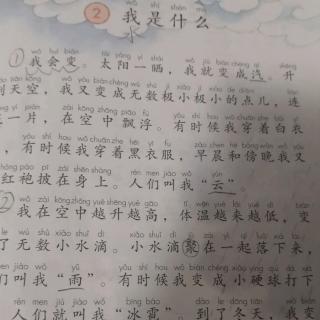 ② 我是什么
水
① 我会变。太阳一晒,我就变成汽。升
到天空,我又变成无数极小极小的点儿,连
一片,在空中飘浮。有时候我穿着白衣
,有时候我穿着黑衣服,早晨和傍晚我又
红袍披在身上。人们叫我“云”。
② 我在空中越升越高,体温越来越低,变
了无数小水滴。小水滴聚在一起落下来,
们叫我“雨”。有时候我变成小硬球打下
人们就叫我“冰雹”。到了冬天,我变